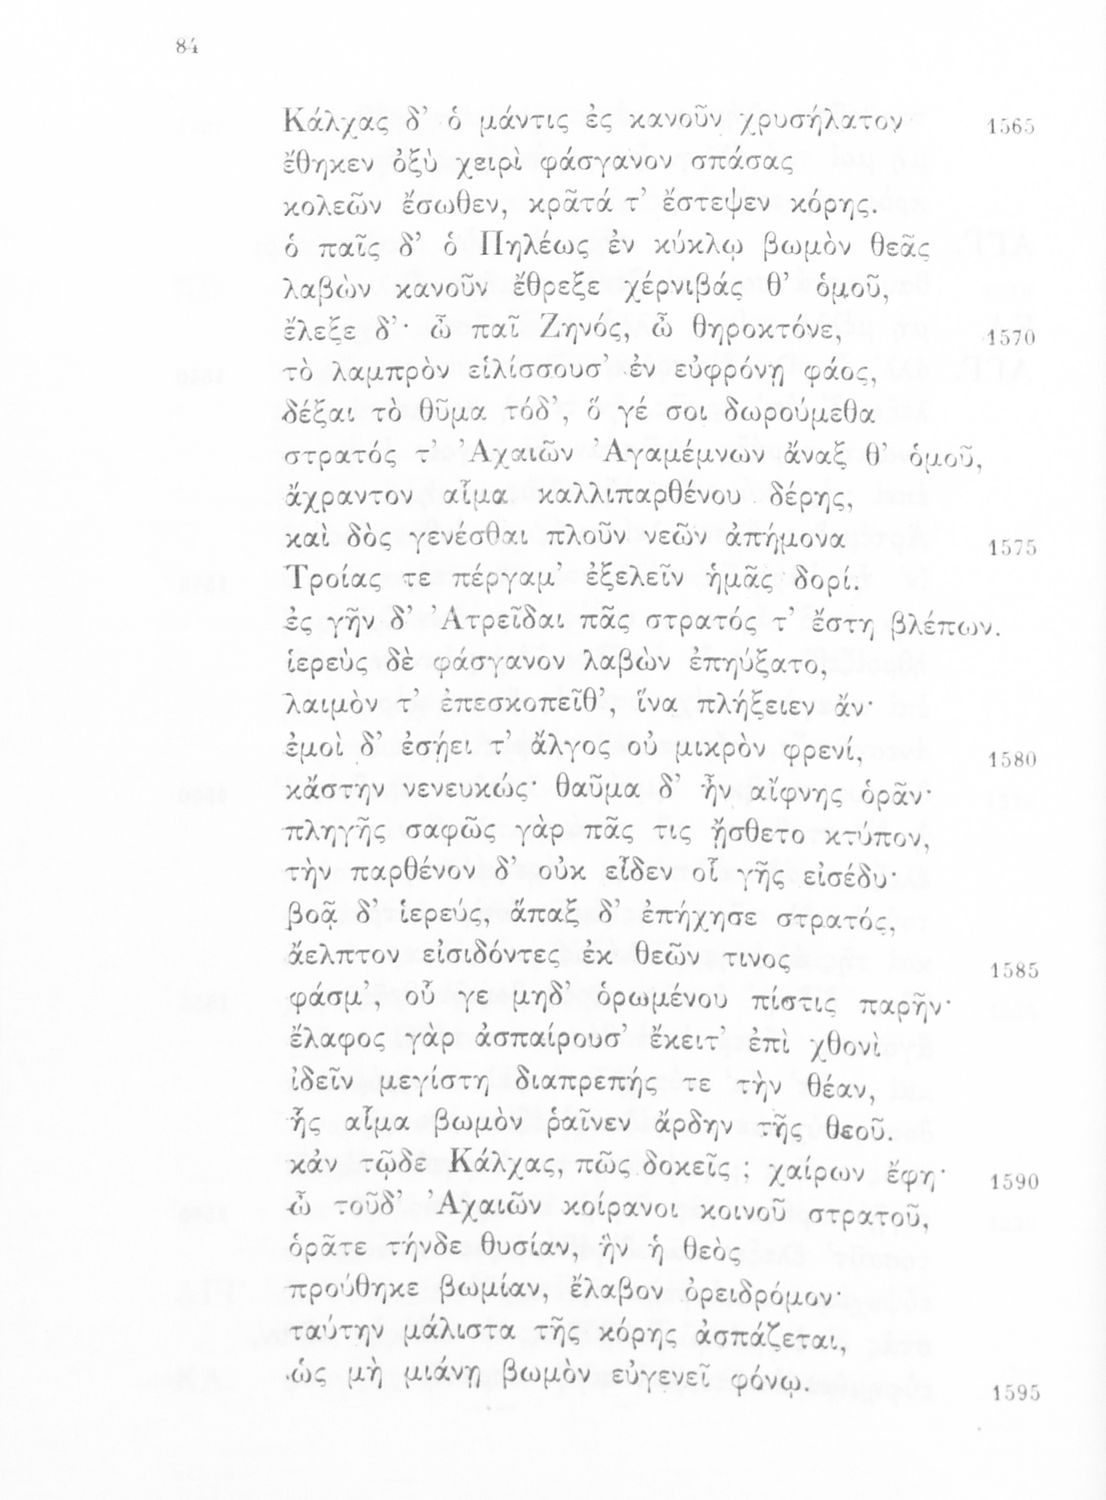 84
Κάλχας δ’ ὁ μάντις ἐς κανοῦν χρυσήλατον 1565
ἔθηκεν ὀξὺ χειρὶ φάσγανον σπάσας
κολεῶν ἔσωθεν, κρᾶτά τ’ ἔστεψεν κόρης.
ὁ παῖς δ’ ὁ Πηλέως ἐν κύκλῳ βωμὸν θεᾶς
λαβὼν κανοῦν ἔθρεξε χέρνιβάς θ’ ὁμοῦ,
ἔλεξε δ’· ὦ παῖ Ζηνός, ὦ θηροκτόνε, 1570
τὸ λαμπρὸν εἱλίσσουσ’ ἐν εὐφρόνῃ φάος,
δέξαι τὸ θῦμα τόδ’, ὅ γέ σοι δωρούμεθα
στρατός τ’ Ἀχαιῶν Ἀγαμέμνων ἄναξ θ’ ὁμοῦ,
ἄχραντον αἷμα καλλιπαρθένου δέρης,
καὶ δὸς γενέσθαι πλοῦν νεῶν ἀπήμονα 1575
Τροίας τε πέργαμ’ ἐξελεῖν ἡμᾶς δορί.
ἐς γῆν δ’ Ἀτρεῖδαι πᾶς στρατός τ’ ἔστη βλέπων.
ἱερεὺς δὲ φάσγανον λαβὼν ἐπηύξατο,
λαιμόν τ’ ἐπεσκοπεῖθ’, ἵνα πλήξειεν ἄν·
ἐμοὶ δ’ ἐσῄει τ’ ἄλγος οὐ μικρὸν φρενί, 1580
κἄστην νενευκώς· θαῦμα δ’ ἦν αἴφνης ὁρᾶν·
πληγῆς σαφῶς γὰρ πᾶς τις ᾔσθετο κτύπον,
τὴν παρθένον δ’ οὐκ εἶδεν οἷ γῆς εἰσέδυ·
βοᾷ δ’ ἱερεύς, ἅπαξ δ’ ἐπήχησε στρατός,
ἄελπτον εἰσιδόντες ἐκ θεῶν τινος 1585
φάσμ’, οὗ γε μηδ’ ὁρωμένου πίστις παρῆν·
ἔλαφος γὰρ ἀσπαίρουσ’ ἔκειτ’ ἐπὶ χθονὶ
ἰδεῖν μεγίστη διαπρεπής τε τὴν θέαν,
ἧς αἷμα βωμὸν ῥαῖνεν ἄρδην τῆς θεοῦ.
κἀν τῷδε Κάλχας, πῶς δοκεῖς ; χαίρων ἔφη· 1590
ὦ τοῦδ’ Ἀχαιῶν κοίρανοι κοινοῦ στρατοῦ,
ὁρᾶτε τήνδε θυσίαν, ἣν ἡ θεὸς
προύθηκε βωμίαν, ἔλαβον ὀρειδρόμον·
ταύτην μάλιστα τῆς κόρης ἀσπάζεται,
ὡς μὴ μιάνῃ βωμὸν εὐγενεῖ φόνῳ. 1595